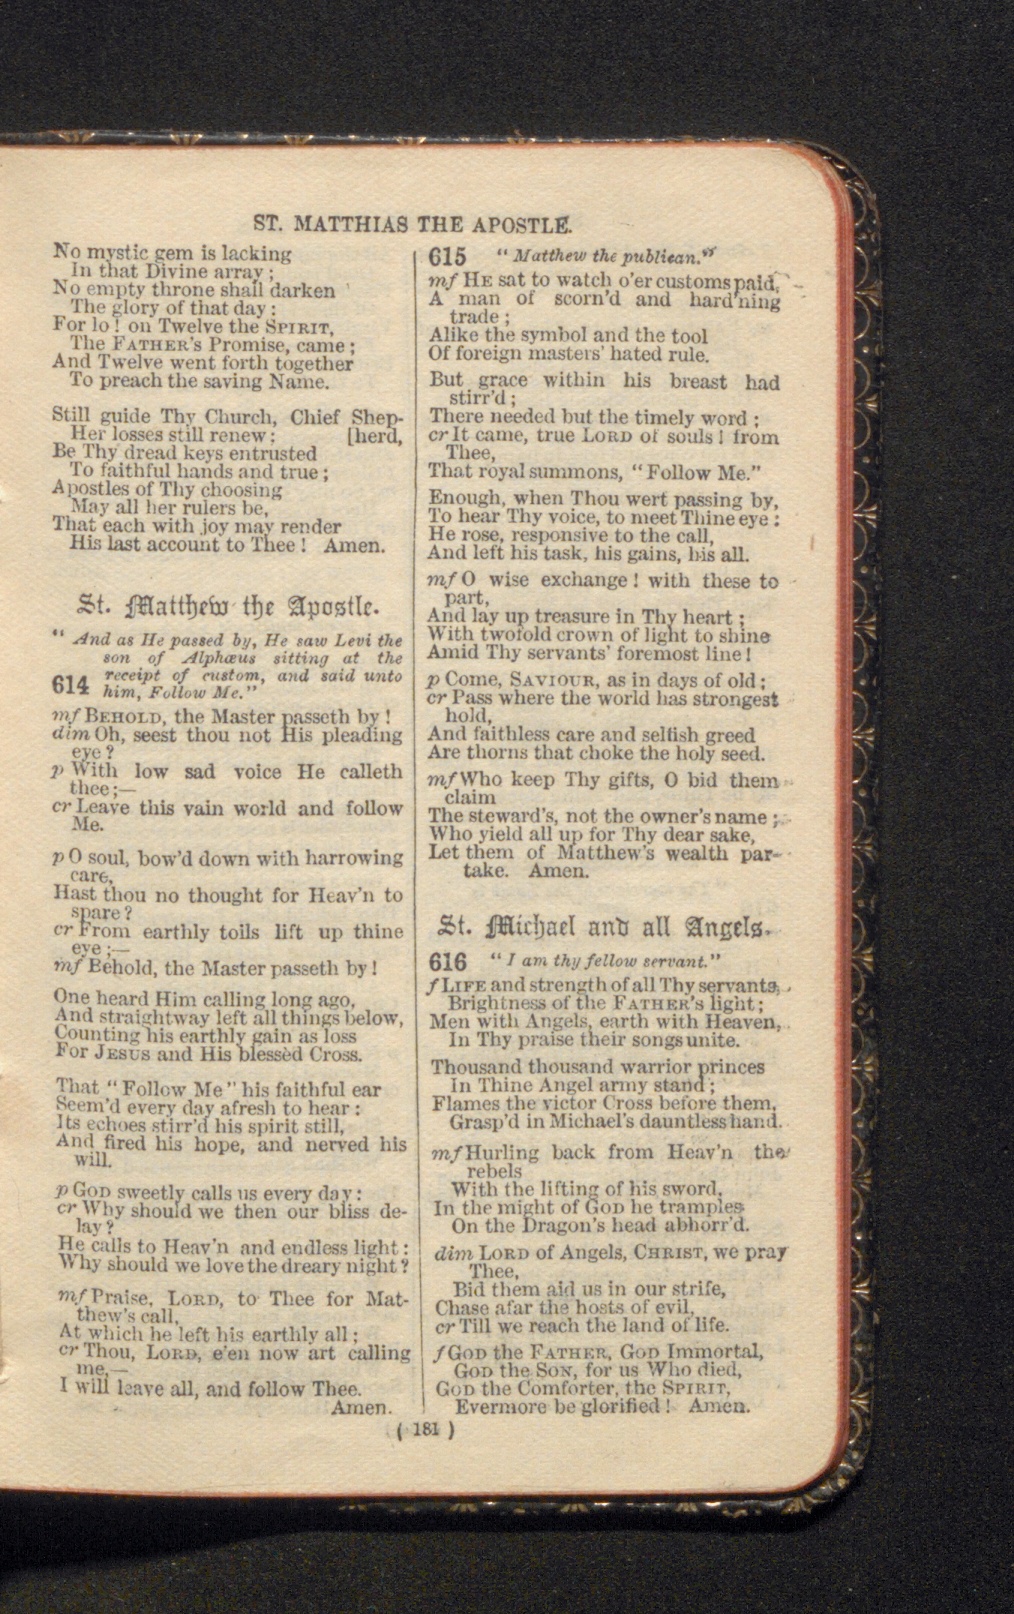 ST. MATTHIAS THE APOSTLE.
No mystic gem is lacking
In that Divine array;
No empty throne shall darken
The glory of that day:
For lo! on Twelve the SPIRIT,
The FATHER'S Promise, came;
And Twelve went forth together
To preach the saving Name.
Still guide Thy Church, Chief Shep-
Her losses still renew: [herd,
Be Thy dread keys entrusted
To faithful hands and true;
Apostles of Thy choosing
May all her rulers be,
That each with joy may render
His last account to Thee! Amen.
St. Matthew the Apostle.
"And as He passed by, He saw Levi the
son of Alphæus sitting at the
receipt of custom, and said unto
614 him, Follow Me."
mf BEHOLD, the Master passeth by!
dim Oh, seest thou not His pleading
eye?
p With low sad voice He calleth
thee;—
cr Leave this vain world and follow
Me.
p O soul, bow'd down with harrowing
care,
Hast thou no thought for Heav'n to
spare?
cr From earthly toils lift up thine
eye;—
mf Behold, the Master passeth by!
One heard Him calling long ago,
And straightway left all things below,
Counting his earthly gain as loss
For JESUS and His blessèd Cross.
That "Follow Me" his faithful ear
Seem'd every day afresh to hear:
Its echoes stirr'd his spirit still,
And fired his hope, and nerved his
will.
p GOD sweetly calls us every day:
cr Why should we then our bliss de-
lay?
He calls to Heav'n and endless light:
Why should we love the dreary night?
mf Praise, LORD, to Thee for Mat-
thew's call,
At which he left his earthly all;
cr Thou, LORD, e'en now art calling
me,—
I will leave all, and follow Thee.
Amen.
615 "Matthew the publican."
mf HE sat to watch o'er customs paid,
A man of scorn'd and hard'ning
trade;
Alike the symbol and the tool
Of foreign masters' hated rule.
But grace within his breast had
stirr'd;
There needed but the timely word;
cr It came, true LORD of souls! from
Thee,
That royal summons, "Follow Me."
Enough, when Thou wert passing by,
To hear Thy voice, to meet Thine eye:
He rose, responsive to the call,
And left his task, his gains, his all.
mf O wise exchange! with these to
part,
And lay up treasure in Thy heart;
With twofold crown of light to shine
Amid Thy servants' foremost line!
p Come, SAVIOUR, as in days of old;
cr Pass where the world has strongest
hold,
And faithless care and selfish greed
Are thorns that choke the holy seed.
mf Who keep Thy gifts, O bid them
claim
The steward's, not the owner's name;
Who yield all up for Thy dear sake,
Let them of Matthew's wealth par-
take. Amen.
St. Michael and all Angels.
616 "I am thy fellow servant."
f LIFE and strength of all Thy servants,
Brightness of the FATHER'S light;
Men with Angels, earth with Heaven,
In Thy praise their songs unite.
Thousand thousand warrior princes
In Thine Angel army stand;
Flames the victor Cross before them,
Grasp'd in Michael's dauntless hand.
mf Hurling back from Heav'n the
rebels
With the lifting of his sword,
In the might of GOD he tramples
On the Dragon's head abhorr'd.
dim LORD of Angels, CHRIST, we pray
Thee,
Bid them aid us in our strife,
Chase afar the hosts of evil,
cr Till we reach the land of life.
f GOD the FATHER, GOD Immortal,
GOD the SON, for us Who died,
GOD the Comforter, the SPIRIT,
Evermore be glorified! Amen.
( 181 )